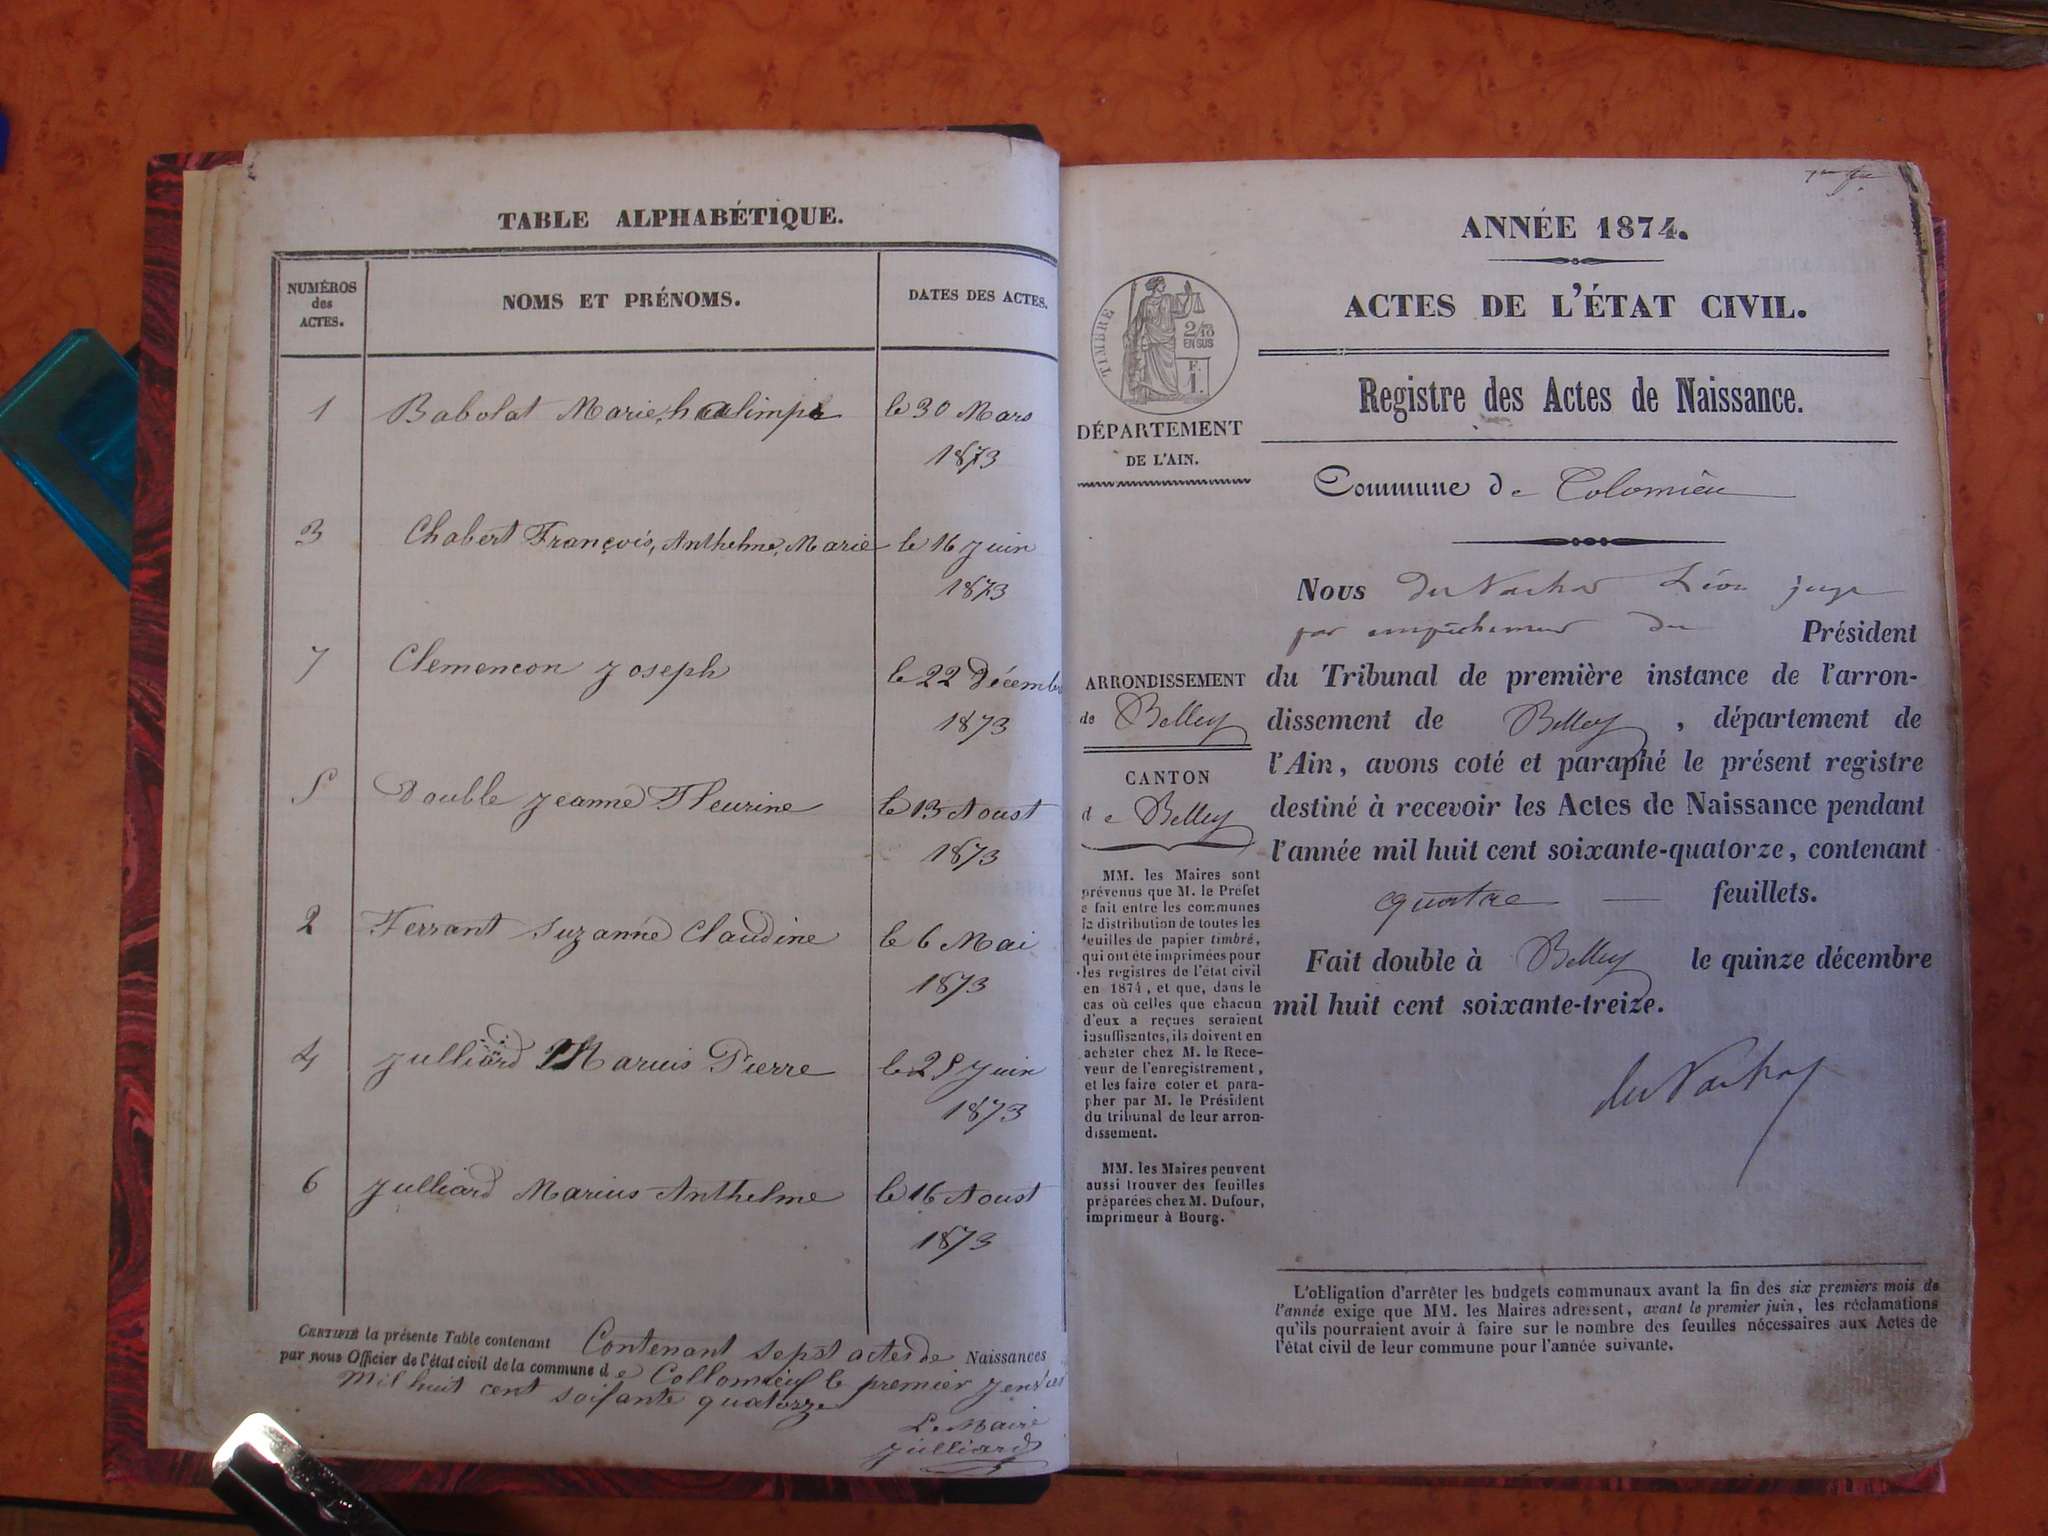 TABLE ALPHABÉTIQUE.
NUMÉROS
des
ACTES.
NOMS ET PRÉNOMS.
DATES DES ACTES.
1 Babolat Marie le 30 Mars
1873
3 Chabert François, Anthelme, Marie le 16 juin
1873
7 Clemencon joseph le 22 Décembre
1873
5 Double jeanne Fleurine le 13 Aoust
1873
2 Ferrant Suzanne Claudine le 6 Mai
1873
4 julliard Maruis Pierre le 25 juin
1873
6 julliard Marius Anthelme le 16 Aoust
1873
CERTIFIÉ la présente Table contenant Contenant sepst actes de Naissances
par nous Officier de l'état civil de la commune de Collomieu le premier
Mil huit cent soifante quatorze
Le Maire
julliard
ANNÉE 1874.
ACTES DE L'ÉTAT CIVIL.
Registre des Actes de Naissance.
TIMBRE
2/10
EN SUS
F.
1.
DÉPARTEMENT
DE L'AIN.
Commune de Colomieu
Nous Léon juge
par empêchement du Président
du Tribunal de première instance de l'arron-
dissement de Belley, département de
l'Ain, avons coté et paraphé le présent registre
destiné à recevoir les Actes de Naissance pendant
l'année mil huit cent soixante-quatorze, contenant
quatre — feuillets.
Fait double à Belley le quinze décembre
mil huit cent soixante-treize.
ARRONDISSEMENT
de Belley
CANTON
de Belley
MM. les Maires sont
prévenus que M. le Préfet
a fait entre les communes
la distribution de toutes les
feuilles de papier timbré,
qui ont été imprimées pour
les registres de l'état civil
en 1874, et que, dans le
cas où celles que chacun
d'eux a reçues seraient
insuffisantes, ils doivent en
acheter chez M. le Rece-
veur de l'enregistrement,
et les faire coter et para-
pher par M. le Président
du tribunal de leur arron-
dissement.
MM. les Maires peuvent
aussi trouver des feuilles
préparées chez M. Dufour,
imprimeur à Bourg.
L'obligation d'arrêter les budgets communaux avant la fin des six premiers mois de
l'année exige que MM. les Maires adressent, avant le premier juin, les réclamations
qu'ils pourraient avoir à faire sur le nombre des feuilles nécessaires aux Actes de
l'état civil de leur commune pour l'année suivante.